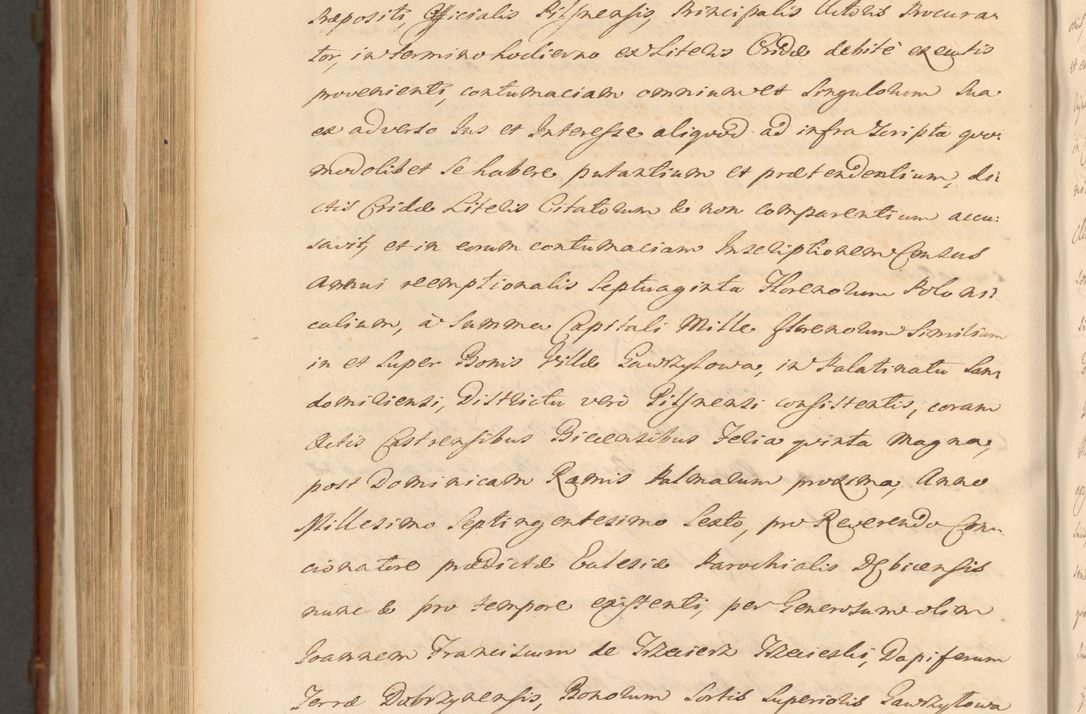 Præpositi, Officialis Pilsnensis, Principalis Actoris Procura-
tor, in termino hodierno ex Literis Cridæ debitè executis
provenienti, contumaciam omnium et Singulorum Sua
ex adverso Jus et Interesse aliquod ad infra Scripta quo-
modolibet Se habere putantium et prætendentium, di-
ctis Cridæ Literis Citatorum & non comparentium accu-
savit, et in eorum contumaciam Inscriptionem Census
annui reemptionalis Septuaginta Florenorum Poloni-
calium, à Summa Capitali Mille florenorum Similium
in et Super Bonis Villæ Gawrzyłowa, in Palatinatu San-
domiriensi, Districtu verò Pilsnensi consistentis, coram
Actis Castrensibus Biecensibus Feria quinta Magna,
post Dominicam Ramis Palmarum proxima, Anno
Millesimo Septingentesimo Sexto, pro Reverendo Con-
cionatore prædictæ Ecclesiæ Parochialis Dębicensis
nunc & pro tempore existenti, per Generosum olim
Joannem Franciscum de
Dapiferum
Terræ Dobrzynensis, Bonorum Sortis Superioris Gawrzyłowa